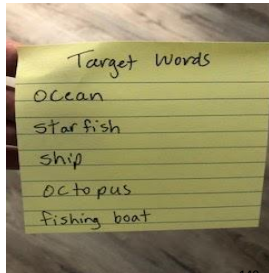 Target Words
ocean
starfish
ship
octopus
fishing boat